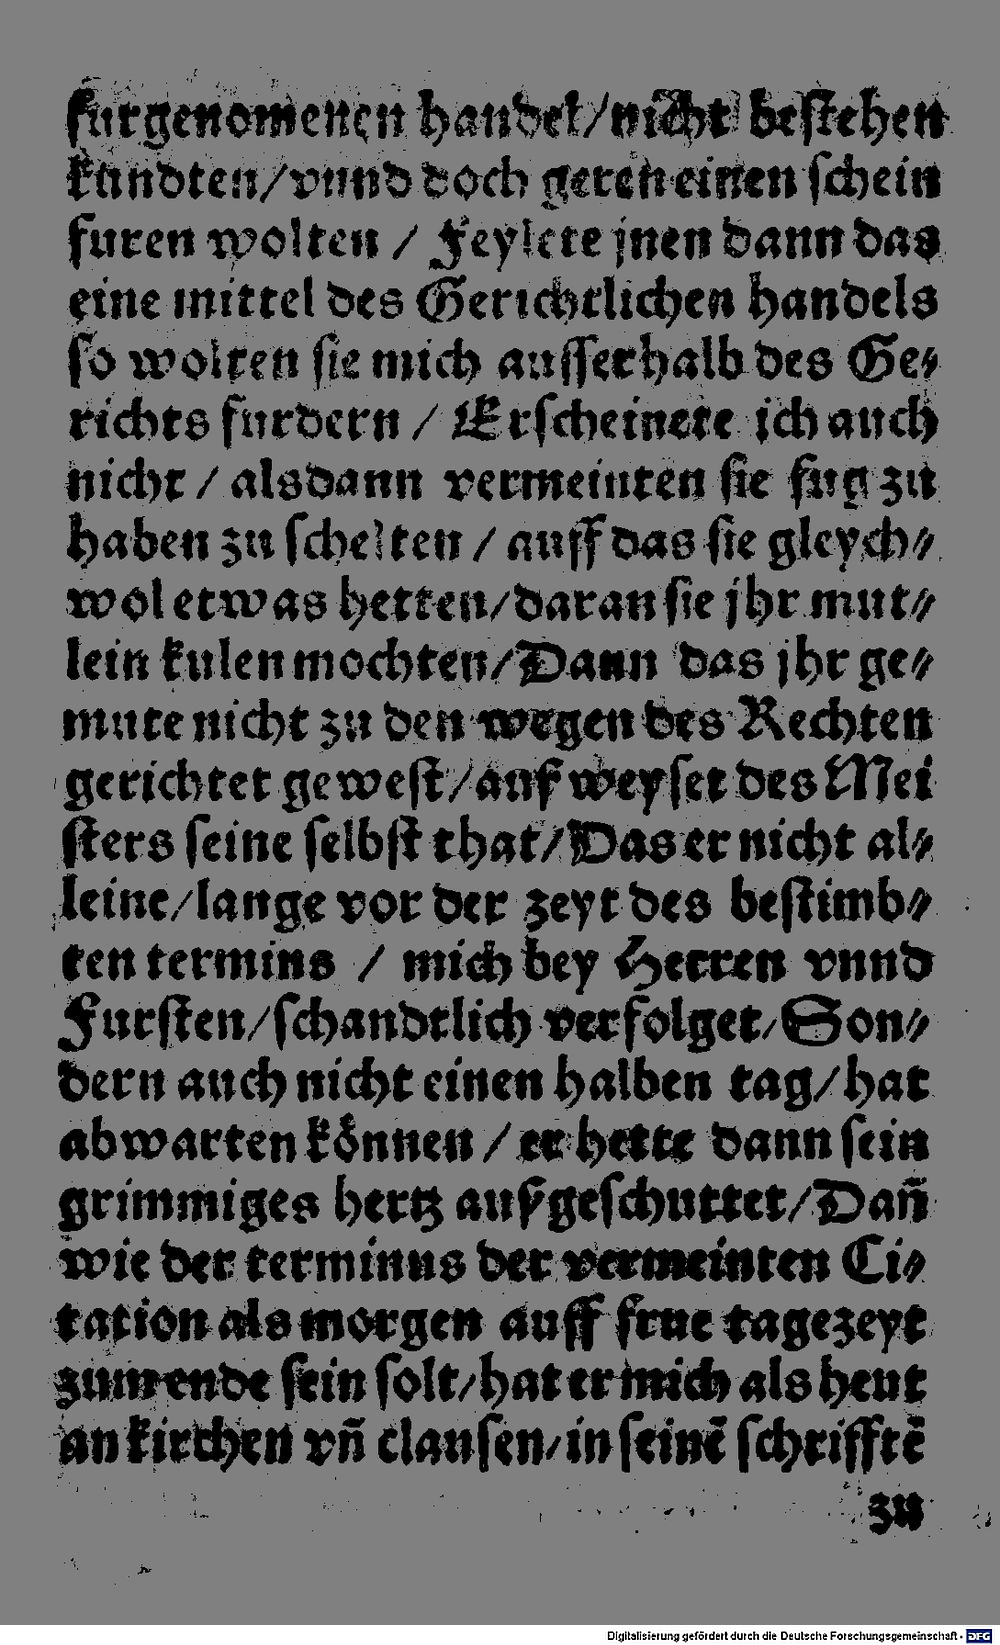 furgenomenen handel/nicht bestehen
kundten/vnnd doch geren einen schein
furen wolten / Feylete jnen dann das
eine mittel des Gerichtlichen handels
so wolten sie mich ausserhalb des Ge⸗
richts furdern / Erscheinete ich auch
nicht / alsdann vermeinten sie fug zu
haben zu schelten / auff das sie gleych⸗
wol etwas hetten/daran sie jhr mut⸗
lein kulen mochten/Dann das jhr ge⸗
mute nicht zu den wegen des Rechten
gerichtet gewest/auß weyset des Mei
sters seine selbst that/Das er nicht al⸗
leine/lange vor der zeyt des bestimb⸗
ten termins / mich bey Herren vnnd
Fursten/schandtlich verfolget/Son⸗
dern auch nicht einen halben tag/hat
abwarten koͤnnen / er hette dann sein
grimmiges hertz außgeschuttet/Dañ
wie der terminus der vermeinten Ci⸗
tation als morgen auff frue tagezeyt
zuwende sein solt/hat er mich als heut
an kirchen vñ clausen/in seinē schrifftē
zu
Digitalisierung gefördert durch die Deutsche Forschungsgemeinschaft - DFG